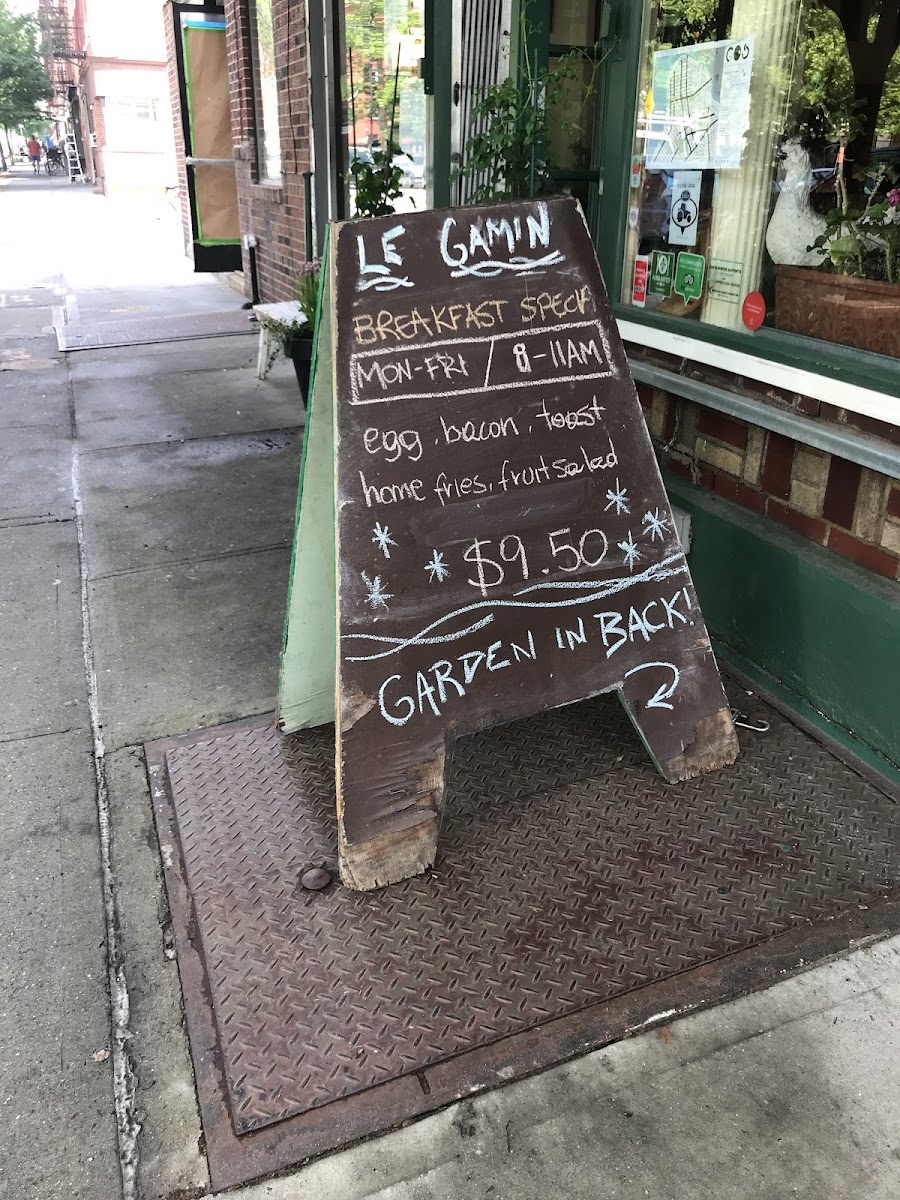 LE GAMIN
BREAKFAST SPECI
MON-FRI / 8-11AM
egg, bacon, toast
home fries, fruit salad
$9.50
GARDEN IN BACK!